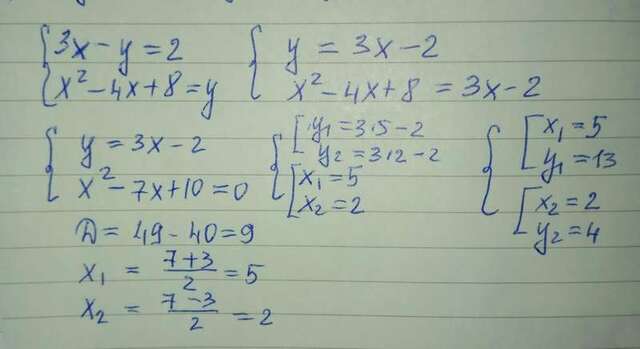 {3x-y=2
{x²-4x+8=y
{y=3x-2
{x²-4x+8=3x-2
{y=3x-2
{x²-7x+10=0
{[y₁=3·5-2
y₂=3·2-2
[x₁=5
x₂=2
{[x₁=5
y₁=13
[x₂=2
y₂=4
Д=49-40=9
x₁=(7+3)/2=5
x₂=(7-3)/2=2